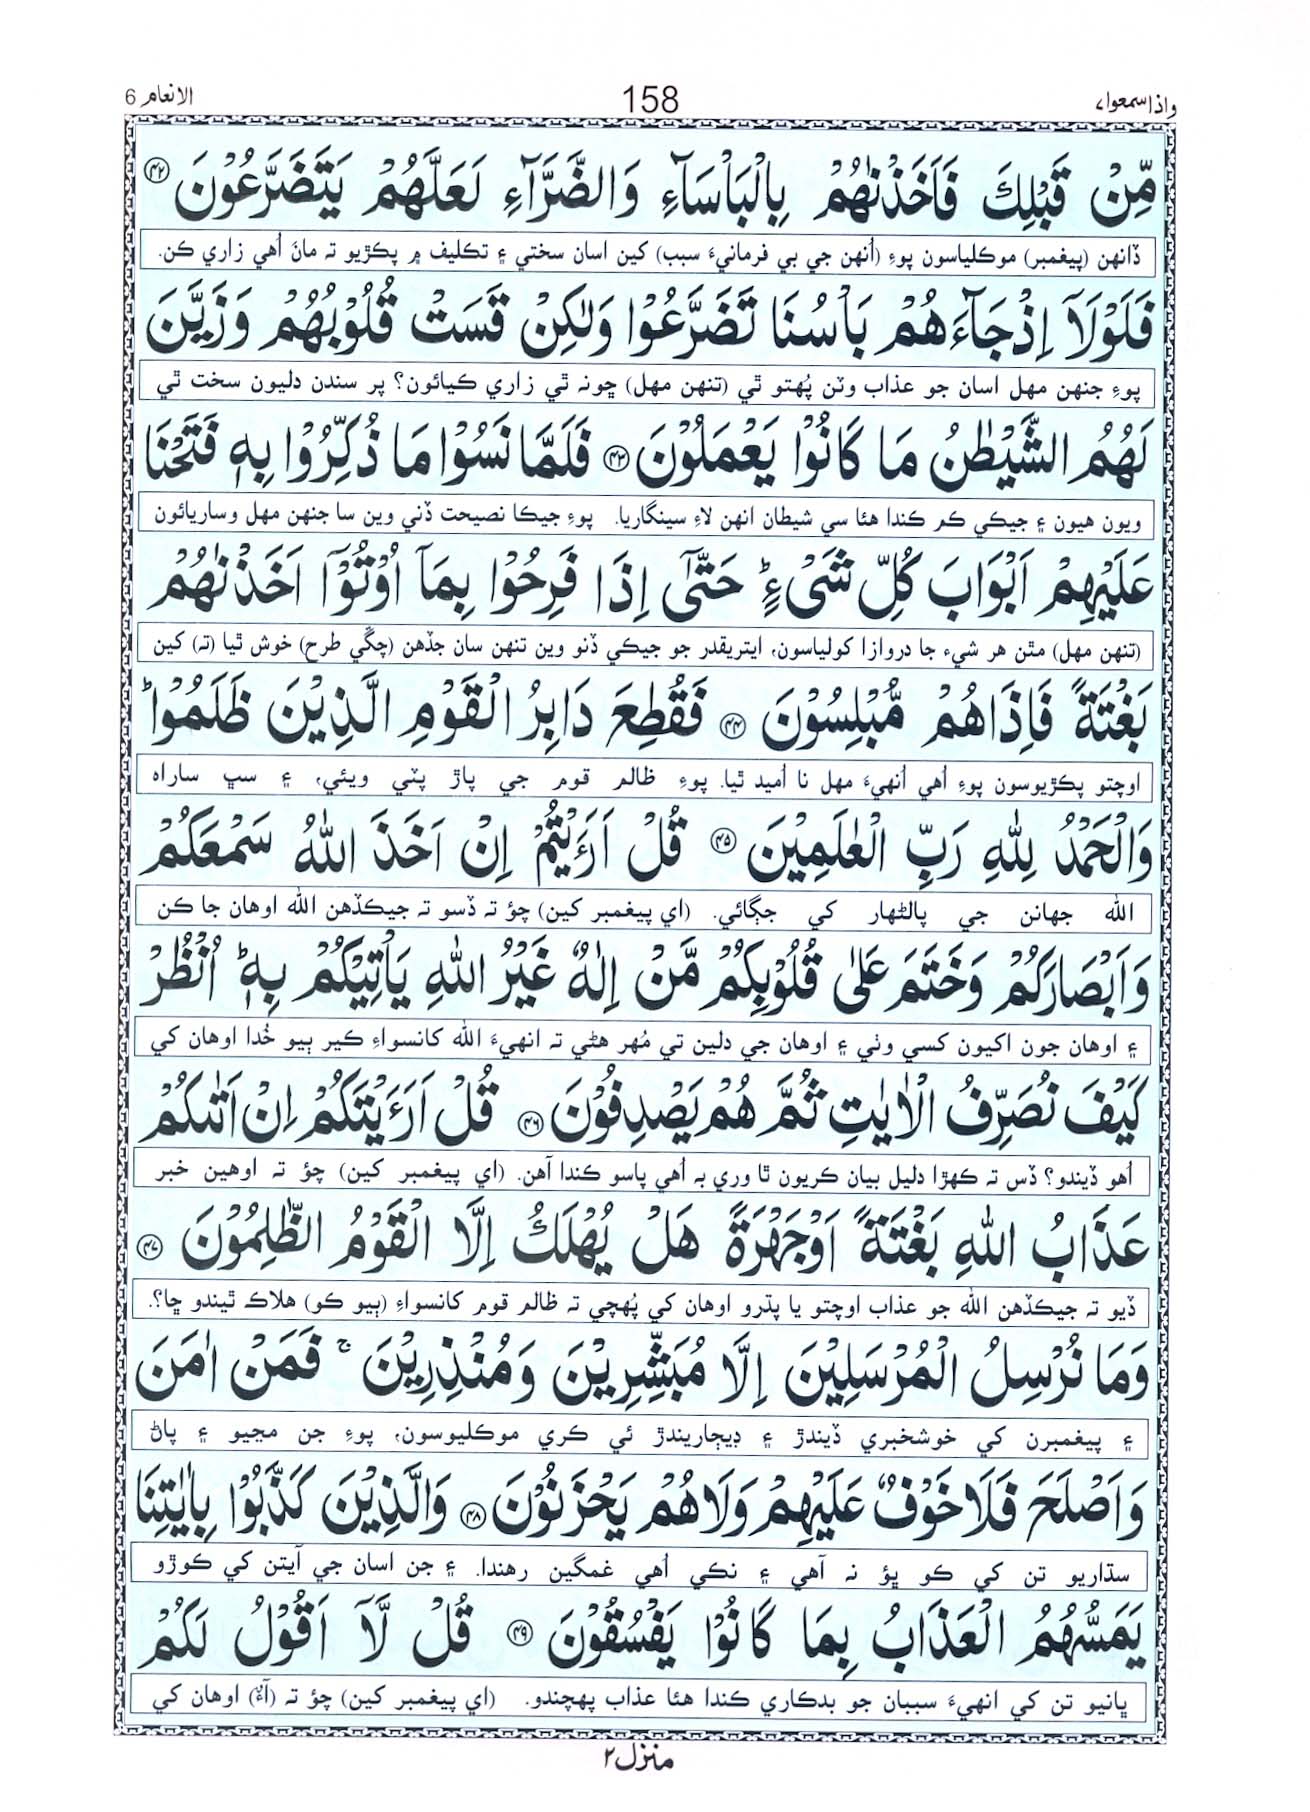 واذاسمعوا٧ 158 الانعام 6
مِّنْ قَبْلِكَ فَاَخَذْنٰهُمْ بِالْبَاْسَآءِ وَالضَّرَّآءِ لَعَلَّهُمْ يَتَضَرَّعُوْنَ ﴿۴۲﴾
ڏانهن (پيغمبر) موڪلياسون پوءِ (اُنهن جي بي فرمانيءَ سبب) کين اسان سختي ۽ تڪليف ۾ پڪڙيو تہ مانَ اُهي زاري ڪن.
فَلَوْلَآ اِذْجَآءَهُمْ بَاْسُنَا تَضَرَّعُوْا وَلٰكِنْ قَسَتْ قُلُوْبُهُمْ وَزَيَّنَ
پوءِ جنهن مهل اسان جو عذاب وٽن پُهتو ٿي (تنهن مهل) ڇونہ ٿي زاري ڪيائون؟ پر سندن دليون سخت ٿي
لَهُمُ الشَّيْطٰنُ مَا كَانُوْا يَعْمَلُوْنَ ﴿۴۳﴾ فَلَمَّا نَسُوْا مَا ذُكِّرُوْا بِهٖ فَتَحْنَا
ويون هيون ۽ جيڪي ڪم ڪندا هئا سي شيطان انهن لاءِ سينگاريا. پوءِ جيڪا نصيحت ڏني وين سا جنهن مهل وساريائون
عَلَيْهِمْ اَبْوَابَ كُلِّ شَىْءٍ ؕ حَتّٰٓى اِذَا فَرِحُوْا بِمَآ اُوْتُوْٓا اَخَذْنٰهُمْ
(تنهن مهل) مٿن هر شيء جا دروازا کولياسون، ايتريقدر جو جيڪي ڏنو وين تنهن سان جڏهن (چڱي طرح) خوش ٿيا (تہ) کين
بَغْتَةً فَاِذَاهُمْ مُّبْلِسُوْنَ ﴿۴۴﴾ فَقُطِعَ دَابِرُ الْقَوْمِ الَّذِيْنَ ظَلَمُوْا ؕ
اوچتو پڪڙيوسون پوءِ اُهي اُنهيءَ مهل نا اُميد ٿيا. پوءِ ظالم قوم جي پاڙ پٽي ويئي، ۽ سڀ ساراه
وَالْحَمْدُ لِلّٰهِ رَبِّ الْعٰلَمِيْنَ ﴿۴۵﴾ قُلْ اَرَءَيْتُمْ اِنْ اَخَذَ اللّٰهُ سَمْعَكُمْ
الله جهانن جي پالڻهار کي جڳائي. (اي پيغمبر کين) چؤ تہ ڏسو تہ جيڪڏهن الله اوهان جا ڪن
وَاَبْصَارَكُمْ وَخَتَمَ عَلٰى قُلُوْبِكُمْ مَّنْ اِلٰهٌ غَيْرُ اللّٰهِ يَاْتِيْكُمْ بِهٖ ؕ اُنْظُرْ
۽ اوهان جون اکيون کسي وٺي ۽ اوهان جي دلين تي مُهر هڻي تہ انهيءَ الله کانسواءِ ڪير ٻيو خُدا اوهان کي
كَيْفَ نُصَرِّفُ الْاٰيٰتِ ثُمَّ هُمْ يَصْدِفُوْنَ ﴿۴۶﴾ قُلْ اَرَءَيْتَكُمْ اِنْ اَتٰىكُمْ
اُهو ڏيندو؟ ڏس تہ ڪهڙا دليل بيان ڪريون ٿا وري بہ اُهي پاسو ڪندا آهن. (اي پيغمبر کين) چؤ تہ اوهين خبر
عَذَابُ اللّٰهِ بَغْتَةً اَوْجَهْرَةً هَلْ يُهْلَكُ اِلَّا الْقَوْمُ الظّٰلِمُوْنَ ﴿۴۷﴾
ڏيو تہ جيڪڏهن الله جو عذاب اوچتو يا پڌرو اوهان کي پُهچي تہ ظالم قوم کانسواءِ (ٻيو ڪو) هلاڪ ٿيندو ڇا؟.
وَمَا نُرْسِلُ الْمُرْسَلِيْنَ اِلَّا مُبَشِّرِيْنَ وَمُنْذِرِيْنَ ۚ فَمَنْ اٰمَنَ
۽ پيغمبرن کي خوشخبري ڏيندڙ ۽ ڊيڄاريندڙ ئي ڪري موڪليوسون، پوءِ جن مڃيو ۽ پاڻ
وَاَصْلَحَ فَلَاخَوْفٌ عَلَيْهِمْ وَلَاهُمْ يَحْزَنُوْنَ ﴿۴۸﴾ وَالَّذِيْنَ كَذَّبُوْا بِاٰيٰتِنَا
سڌاريو تن کي ڪو ڀؤ نہ آهي ۽ نڪي اُهي غمگين رهندا. ۽ جن اسان جي آيتن کي ڪوڙو
يَمَسُّهُمُ الْعَذَابُ بِمَا كَانُوْا يَفْسُقُوْنَ ﴿۴۹﴾ قُلْ لَّآ اَقُوْلُ لَكُمْ
ڀانيو تن کي انهيءَ سببان جو بدڪاري ڪندا هئا عذاب پهچندو. (اي پيغمبر کين) چؤ تہ (آءٌ) اوهان کي
منزل٢